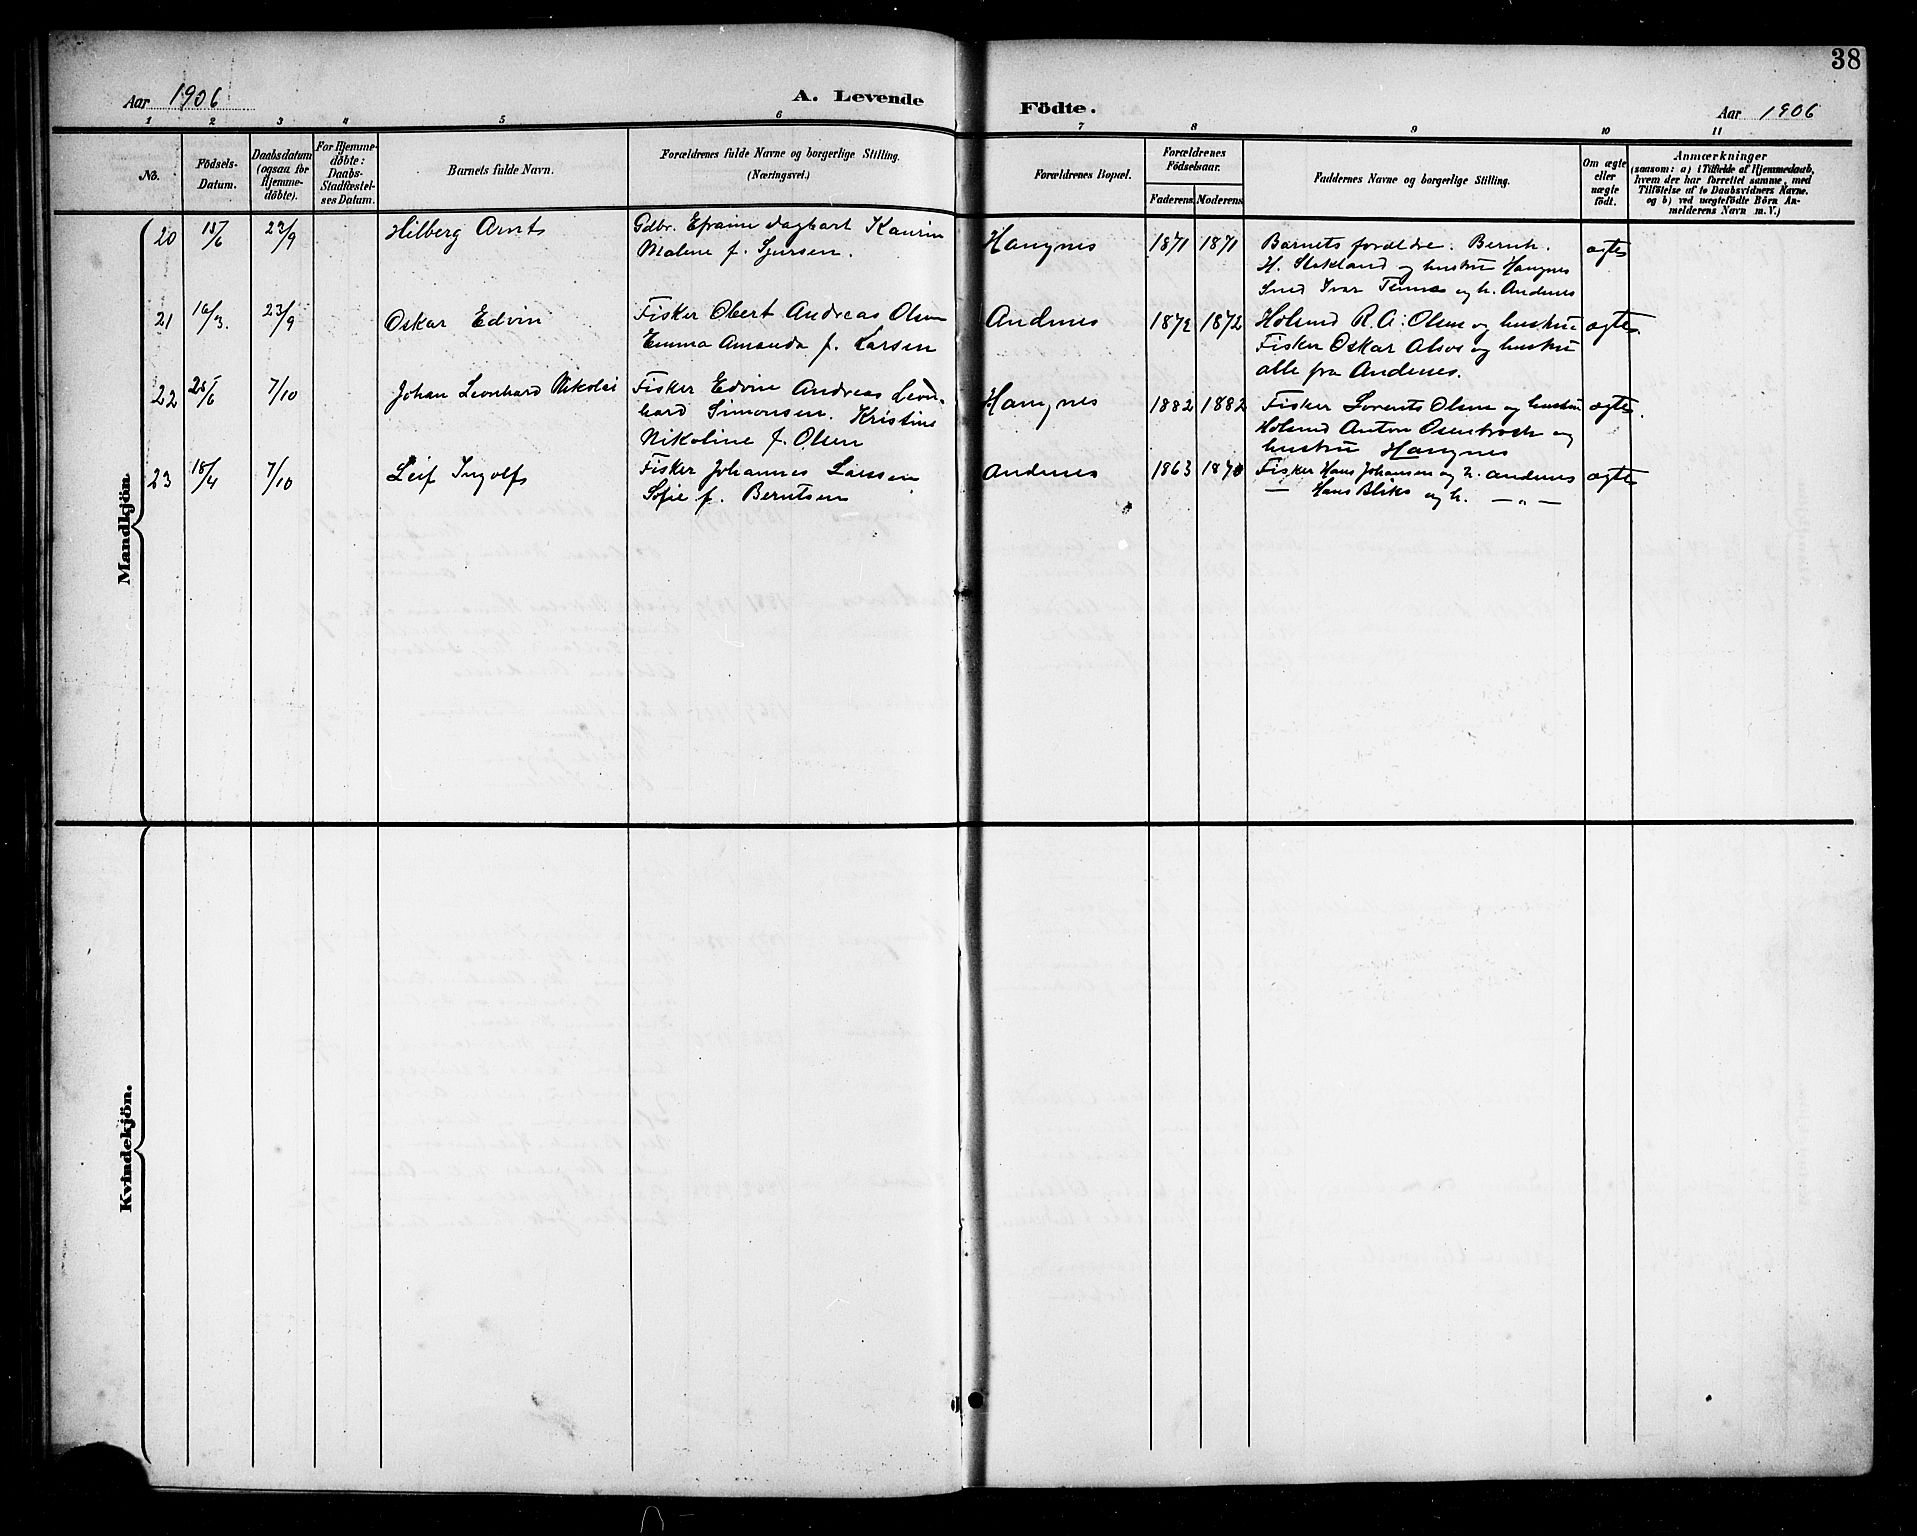 38
Aar 1906
A. Levende
Födte.
Aar 1906
1 2 3 4 5 6 7 8 9 10 11
No.
Födsels-
Datum.
Daabsdatum
(ogsaa for
Hjemme-
døbte).
For Hjemme-
døbte:
Daabs-
Stadfæstel-
ses Datum.
Barnets fulde Navn.
Forældrenes fulde Navne og borgerlige Stilling.
(Næringsvei.)
Forældrenes Bopæl.
Forældrenes
Födselsaar.
Faderens. Moderens.
Faddernes Navne og borgerlige Stilling.
Om ægte
eller
uægte
födt.
Anmærkninger
(saasom: a) i Tilfælde af Hjemmedaab,
hvem der har forrettet samme, med
Tilföielse af to Daabsvidners Navne,
og b) ved uægtefödte Börn An-
melderens Navn m. V.)
Mandkjön.
20 15/6 23/9 Hilberg Arnt
Gdbr. Efraim Dagbart Kaurin
Malene f. Sjursen.
Haugnes 1871 1871
Barnets forældre. Bernh.
H. Stokland og hustru Haugnes
Smed Ivar og h. Andenes
ægte
21 16/3. 23/9 Oskar Edvin
Fisker Obert Andreas Olsen
Emma Amanda f. Larsen
Andenes 1872 1872
R. A. Olsen og hustru
Fisker Oskar og hustru
alle fra Andenes.
ægte.
22 25/6 7/10 Johan Leonhard Nikolai
Fisker Edvin Andreas Leon-
hard Simonsen. Kristine
Nikoline f. Olsen
Haugnes 1882 1882
Fisker Lorents Olsen og hustru
Anton og
hustru Haugnes
ægte.
23 18/4 7/10 Leif Ingolf
Fisker Johannes Larssen
Sofie f. Berntsen
Andenes 1863 1870
Fisker Hans Johansen og h. Andenes
— Hans Bliks og h. — „ —
ægte
Kvindekjön.